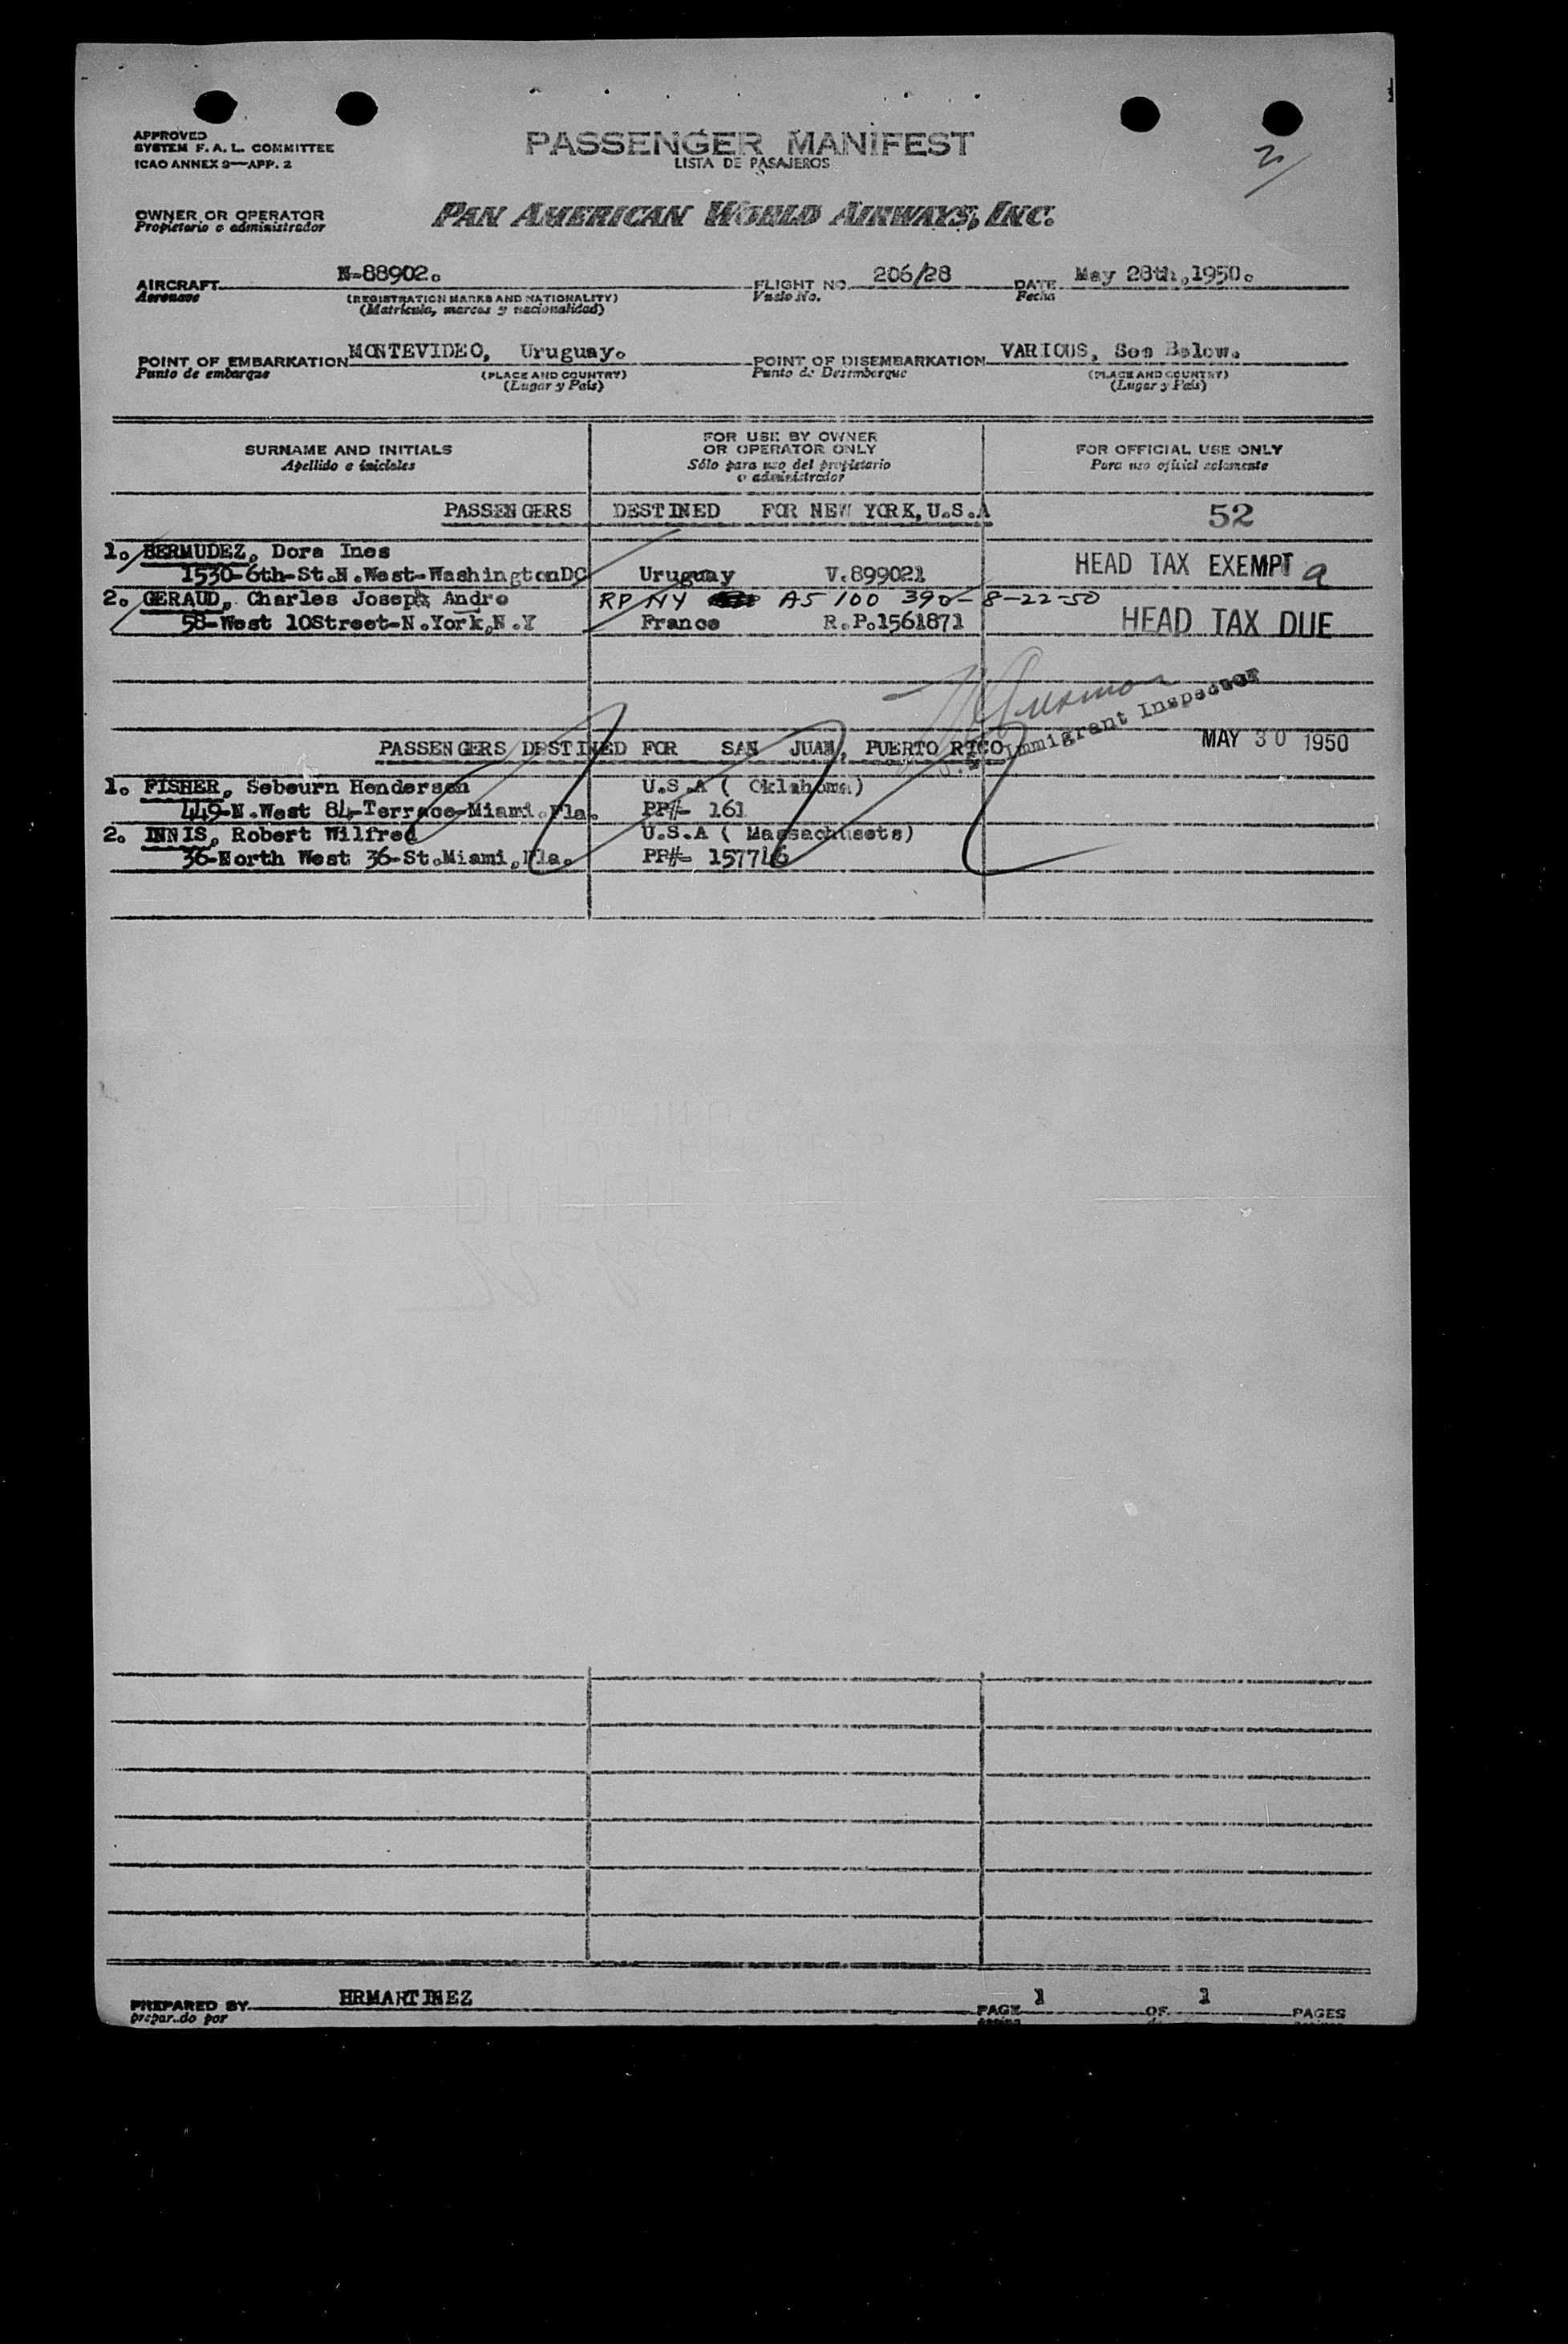 APPROVED
SYSTEM F. A. L. COMMITTEE
ICAO ANNEX 9—APP. 2
PASSENGER MANIFEST
LISTA DE PASAJEROS
OWNER OR OPERATOR
Propietario o administrador
PAN AMERICAN WORLD AIRWAYS, INC.
AIRCRAFT N-88902. FLIGHT NO. 206/28 DATE May 28th,1950.
Aeronave (REGISTRATION MARKS AND NATIONALITY) Vuelo No. Fecha
(Matricula, marcas y nacionalidad)
POINT OF EMBARKATION MONTEVIDEO, Uruguay. POINT OF DISEMBARKATION VARIOUS, See Below.
Punto de embarque (PLACE AND COUNTRY) Punto de Desembarque (PLACE AND COUNTRY)
(Lugar y País) (Lugar y País)
SURNAME AND INITIALS FOR USE BY OWNER OR OPERATOR ONLY FOR OFFICIAL USE ONLY
Apellido e iniciales Sólo para uso del propietario o administrador Para uso oficial solamente
PASSENGERS DESTINED FOR NEW YORK,U.S.A 52
1. BERMUDEZ, Dora Ines
1530-6th-St.N.West-WashingtonDC Uruguay V.899021 HEAD TAX EXEMPT a
2. GERAUD, Charles Joseph Andre RP NY A5 100 390- 8-22-50
58-West 10Street-N.York,N.Y France R.P.1561871 HEAD TAX DUE
Immigrant Inspector
PASSENGERS DESTINED FOR SAN JUAN, PUERTO RICO MAY 30 1950
1. FISHER, Sebeurn Henderson U.S.A ( Oklahoma)
449-N.West 84-Terrace-Miami.Fla. PP#- 161
2. INNIS, Robert Wilfred U.S.A ( Massachusets)
36-North West 36-St.Miami,Fla. PP#- 157746
PREPARED BY HRMARTINEZ PAGE 1 OF 1 PAGES
preparado por